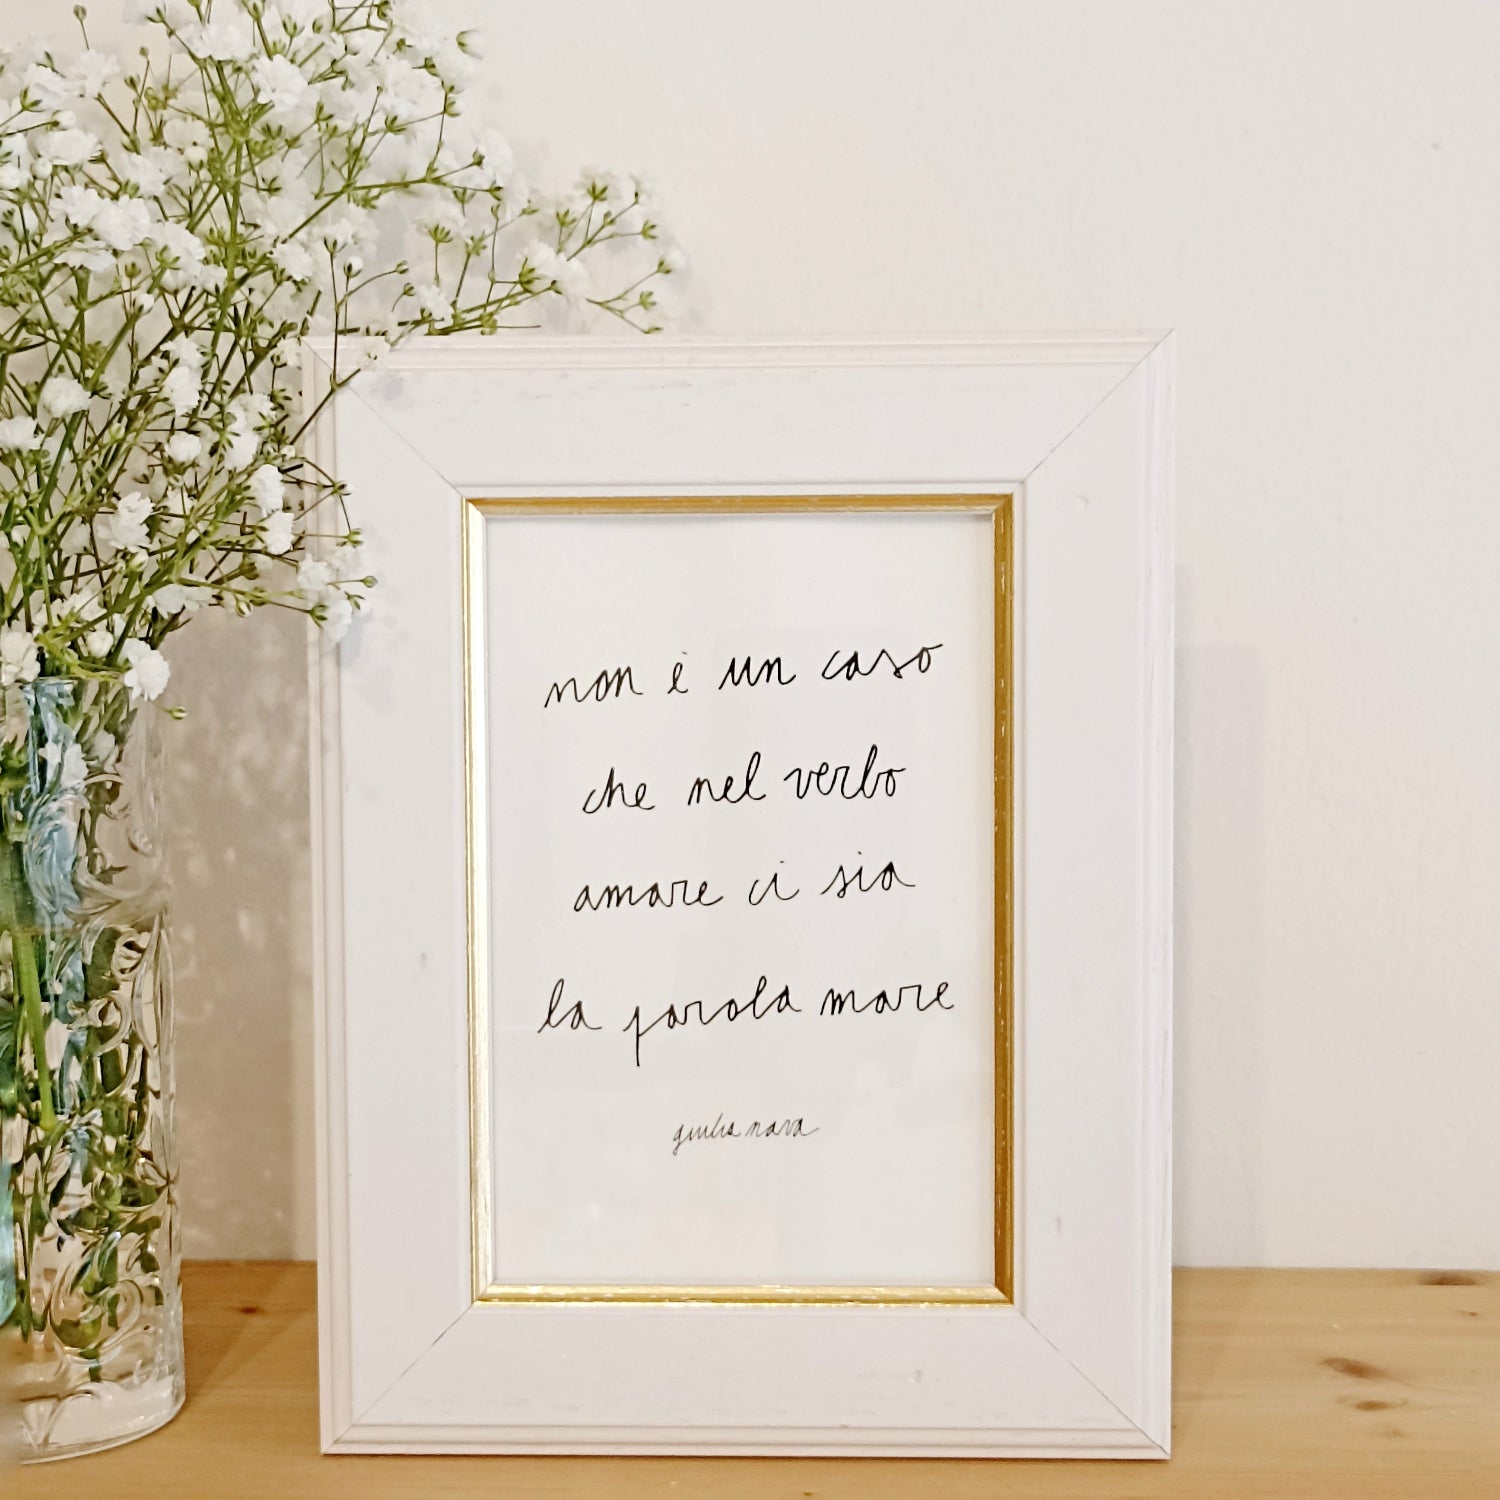 non è un caso
che nel verbo
amare ci sia
la parola mare
giulia nava